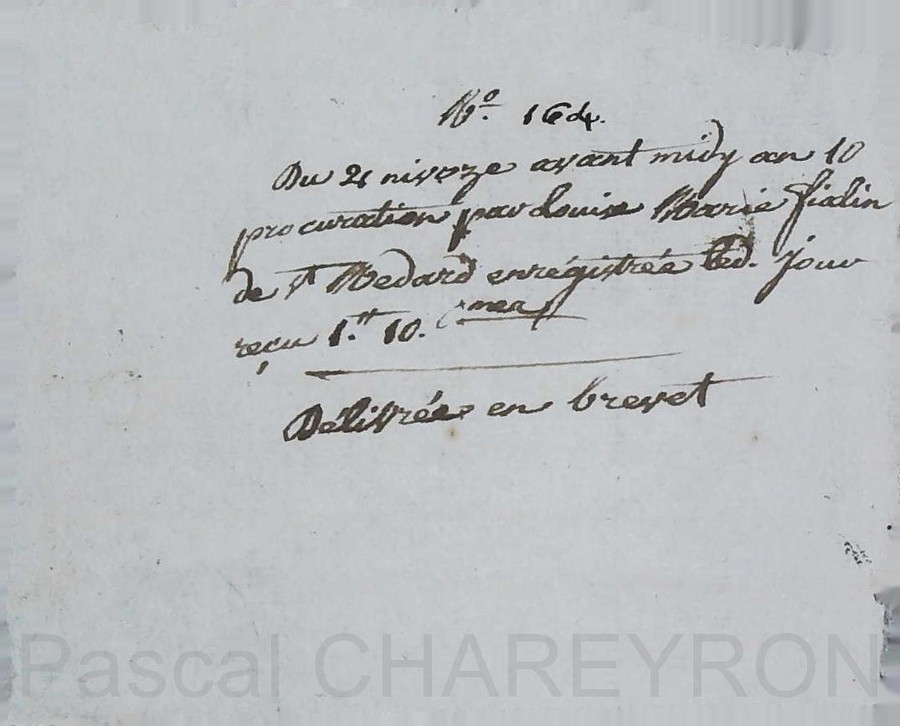 No. 164.
Du 21 nivoze avant midy an 10
procuration par Louise Marie fialin
de St Medard enrégistrée led. jour
reçu 1.tt 10. cmes
Délivrée en brevet
Pascal CHAREYRON